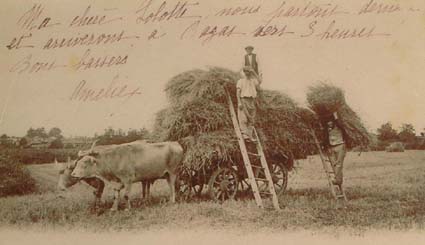 Ma chère Lolotte, nous partons demain
et arriverons à Pagas vers 3 heures
Bons baisers
Amélie